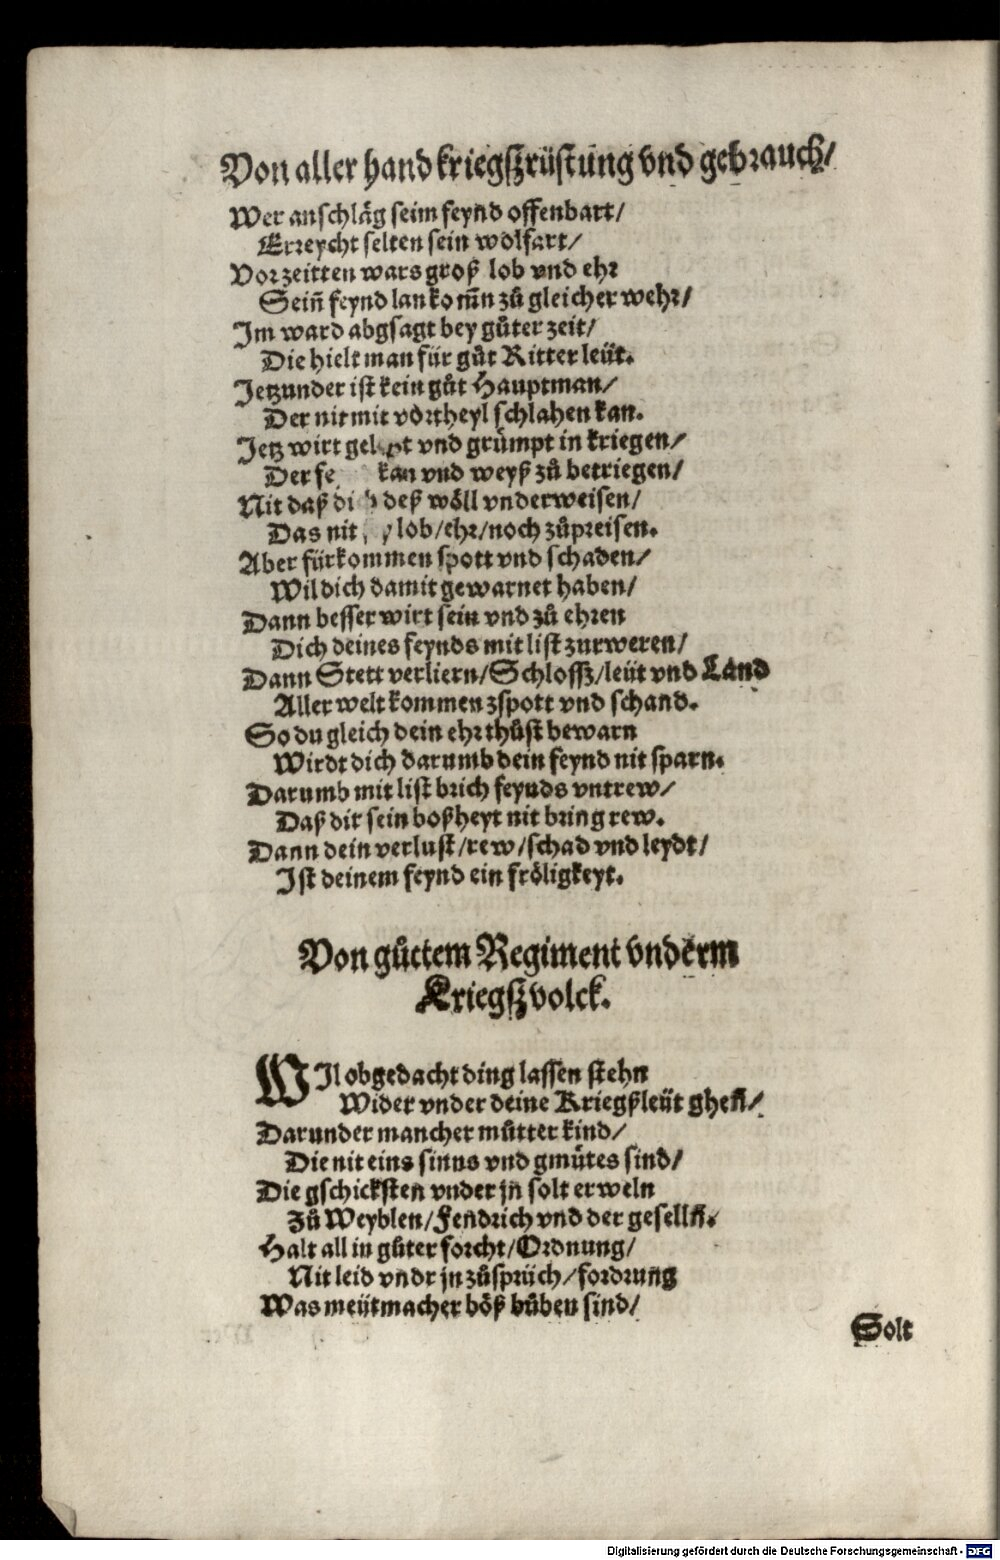 Von aller hand kriegßrüstung vnd gebrauch/
Wer anschläg seim feynd offenbart/
Erreycht selten sein wolfart/
Vor zeitten wars groß lob vnd ehr
Sein̄ feynd lan kom̄n zů gleicher wehr/
Im ward abgsagt bey gůter zeit/
Die hielt man für gůt Ritter leüt.
Jetzunder ist kein gůt Hauptman/
Der nit mit vörtheyl schlahen kan.
Jetz wirt vnd grůmpt in kriegen/
Der kan vnd weyß zů betriegen/
Nit daß dich deß wöll vnderweisen/
Das nit lob/ehr/noch zůpreisen.
Aber fürkommen spott vnd schaden/
Wil dich damit gewarnet haben/
Dann besser wirt sein vnd zů ehren
Dich deines feynds mit list zurweren/
Dann Stett verliern/Schlossz/leüt vnd Land
Aller welt kommen zspott vnd schand.
So du gleich dein ehr thůst bewarn
Wirdt dich darumb dein feynd nit sparn.
Darumb mit list brich feynds vntrew/
Daß dir sein boßheyt nit bring rew.
Dann dein verlust/rew/schad vnd leydt/
Ist deinem feynd ein fröligkeyt.
Von gůttem Regiment vnderm
Kriegßvolck.
WIl obgedacht ding lassen stehn
Wider vnder deine Kriegßleüt ghen̄/
Darunder mancher můtter kind/
Die nit eins sinns vnd gmůtes sind/
Die gschicksten vnder jn solt erweln
Zů Weyblen/Fendrich vnd der geselln̄.
Halt all in gůter forcht/Ordnung/
Nit leid vndr jn zůsprüch/fordrung
Was meütmacher böß bůben sind/
Solt
Digitalisierung gefördert durch die Deutsche Forschungsgemeinschaft - DFG